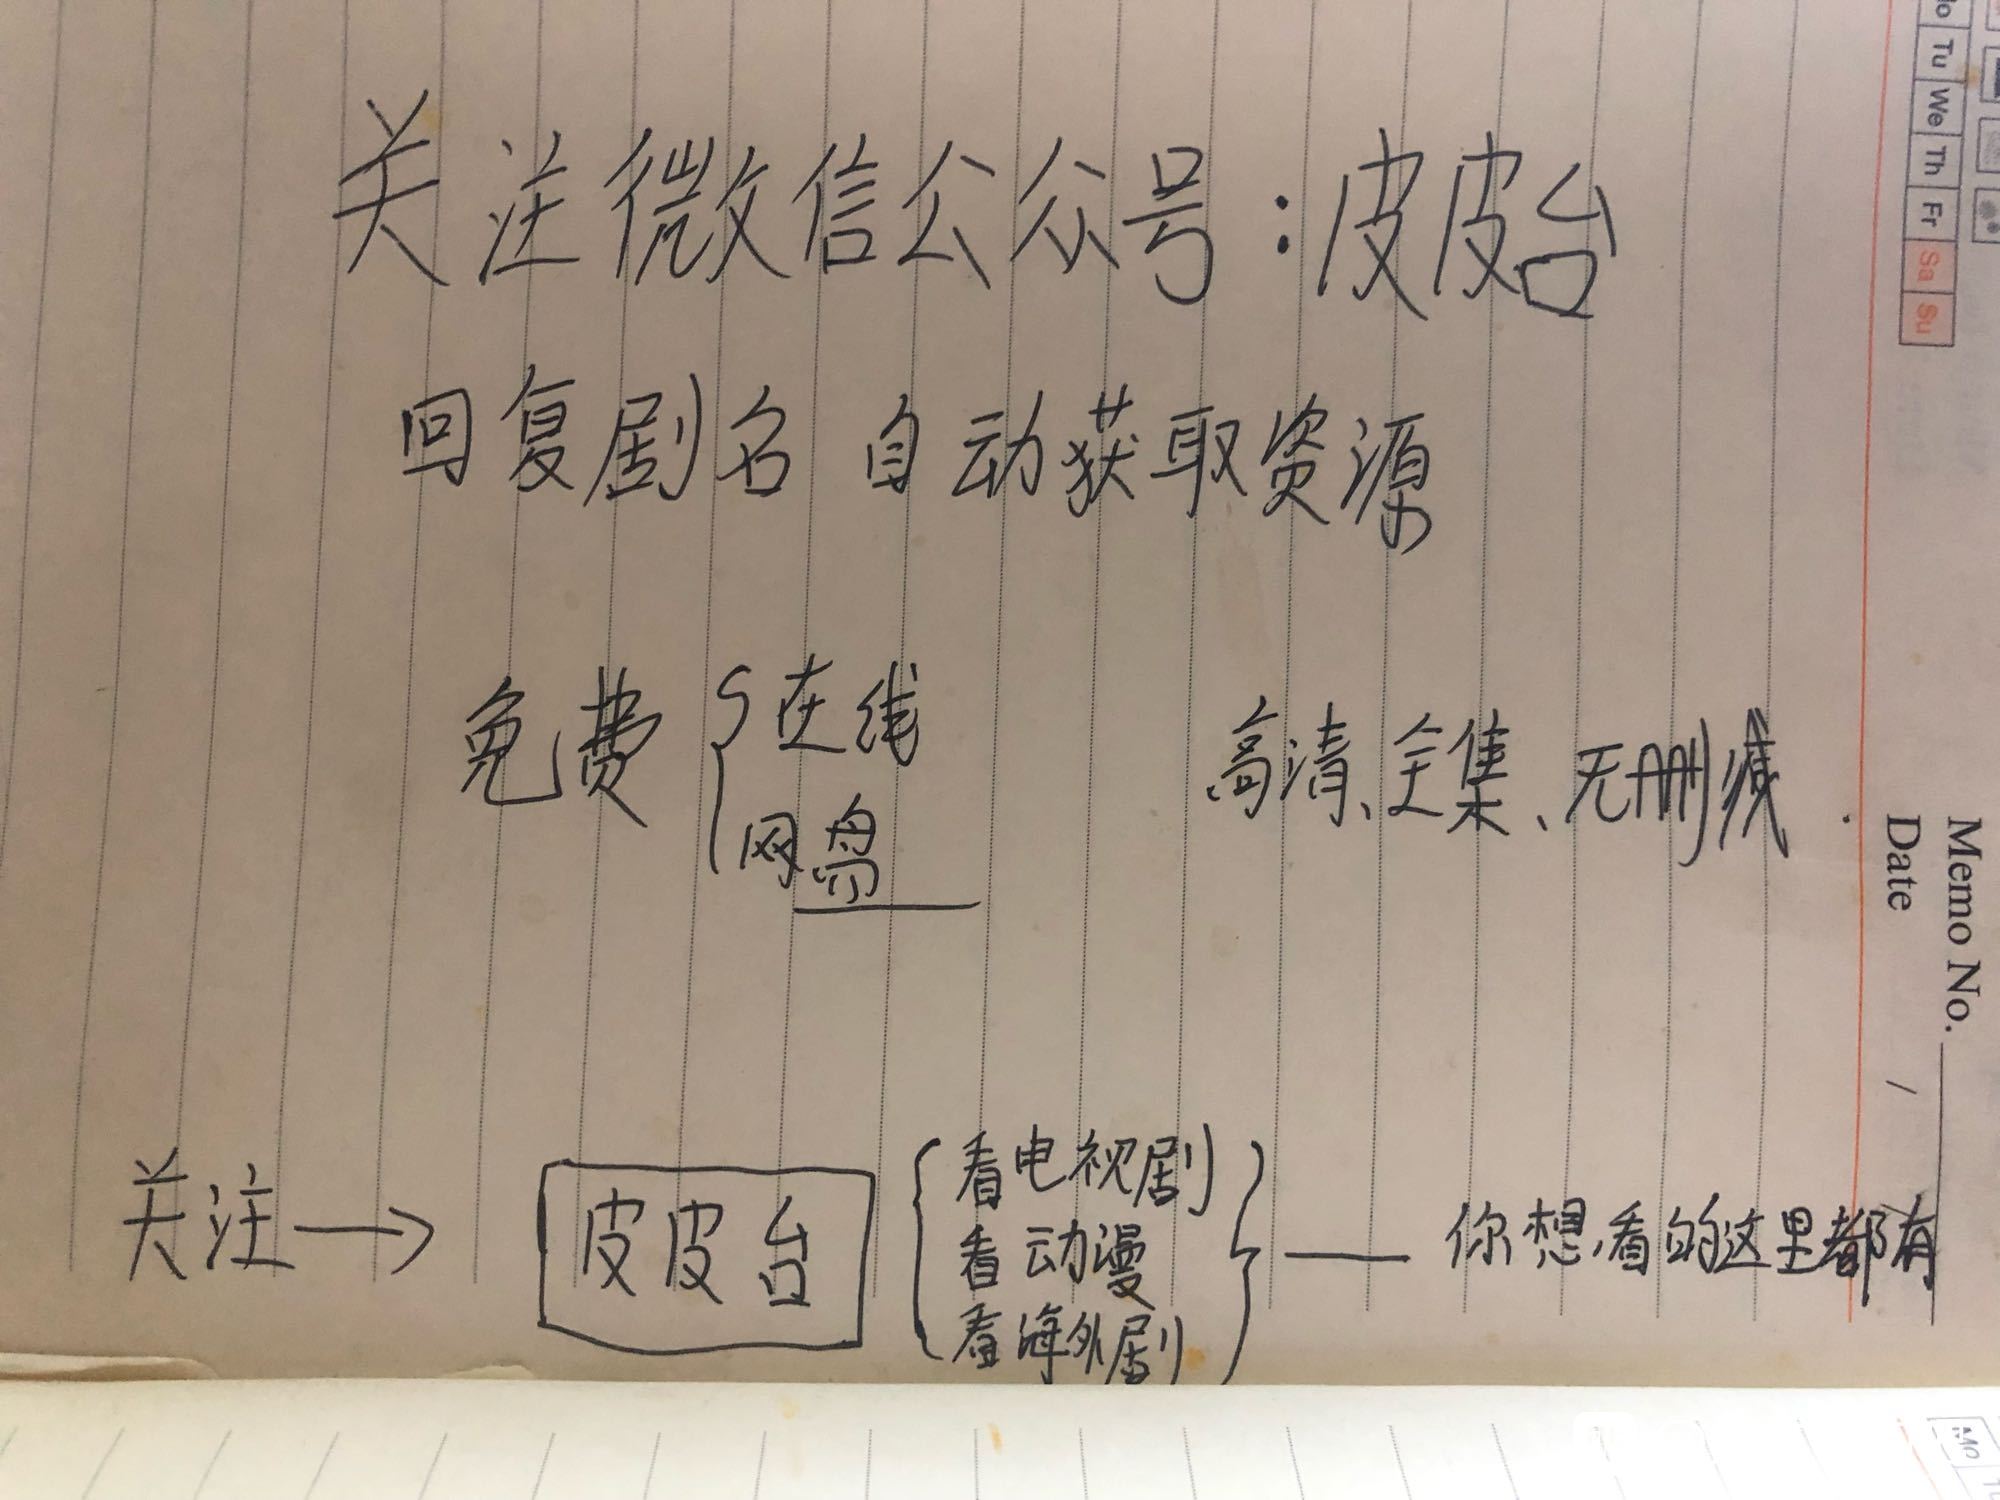 关注微信公众号:皮皮台
回复剧名 自动获取资源
免费
在线
网盘
高清、全集、无删减
关注→
皮皮台
看电视剧
看动漫
看海外剧
你想看的这里都有
Memo No.
Date /
Tu We Th Fr Sa Su
Mo